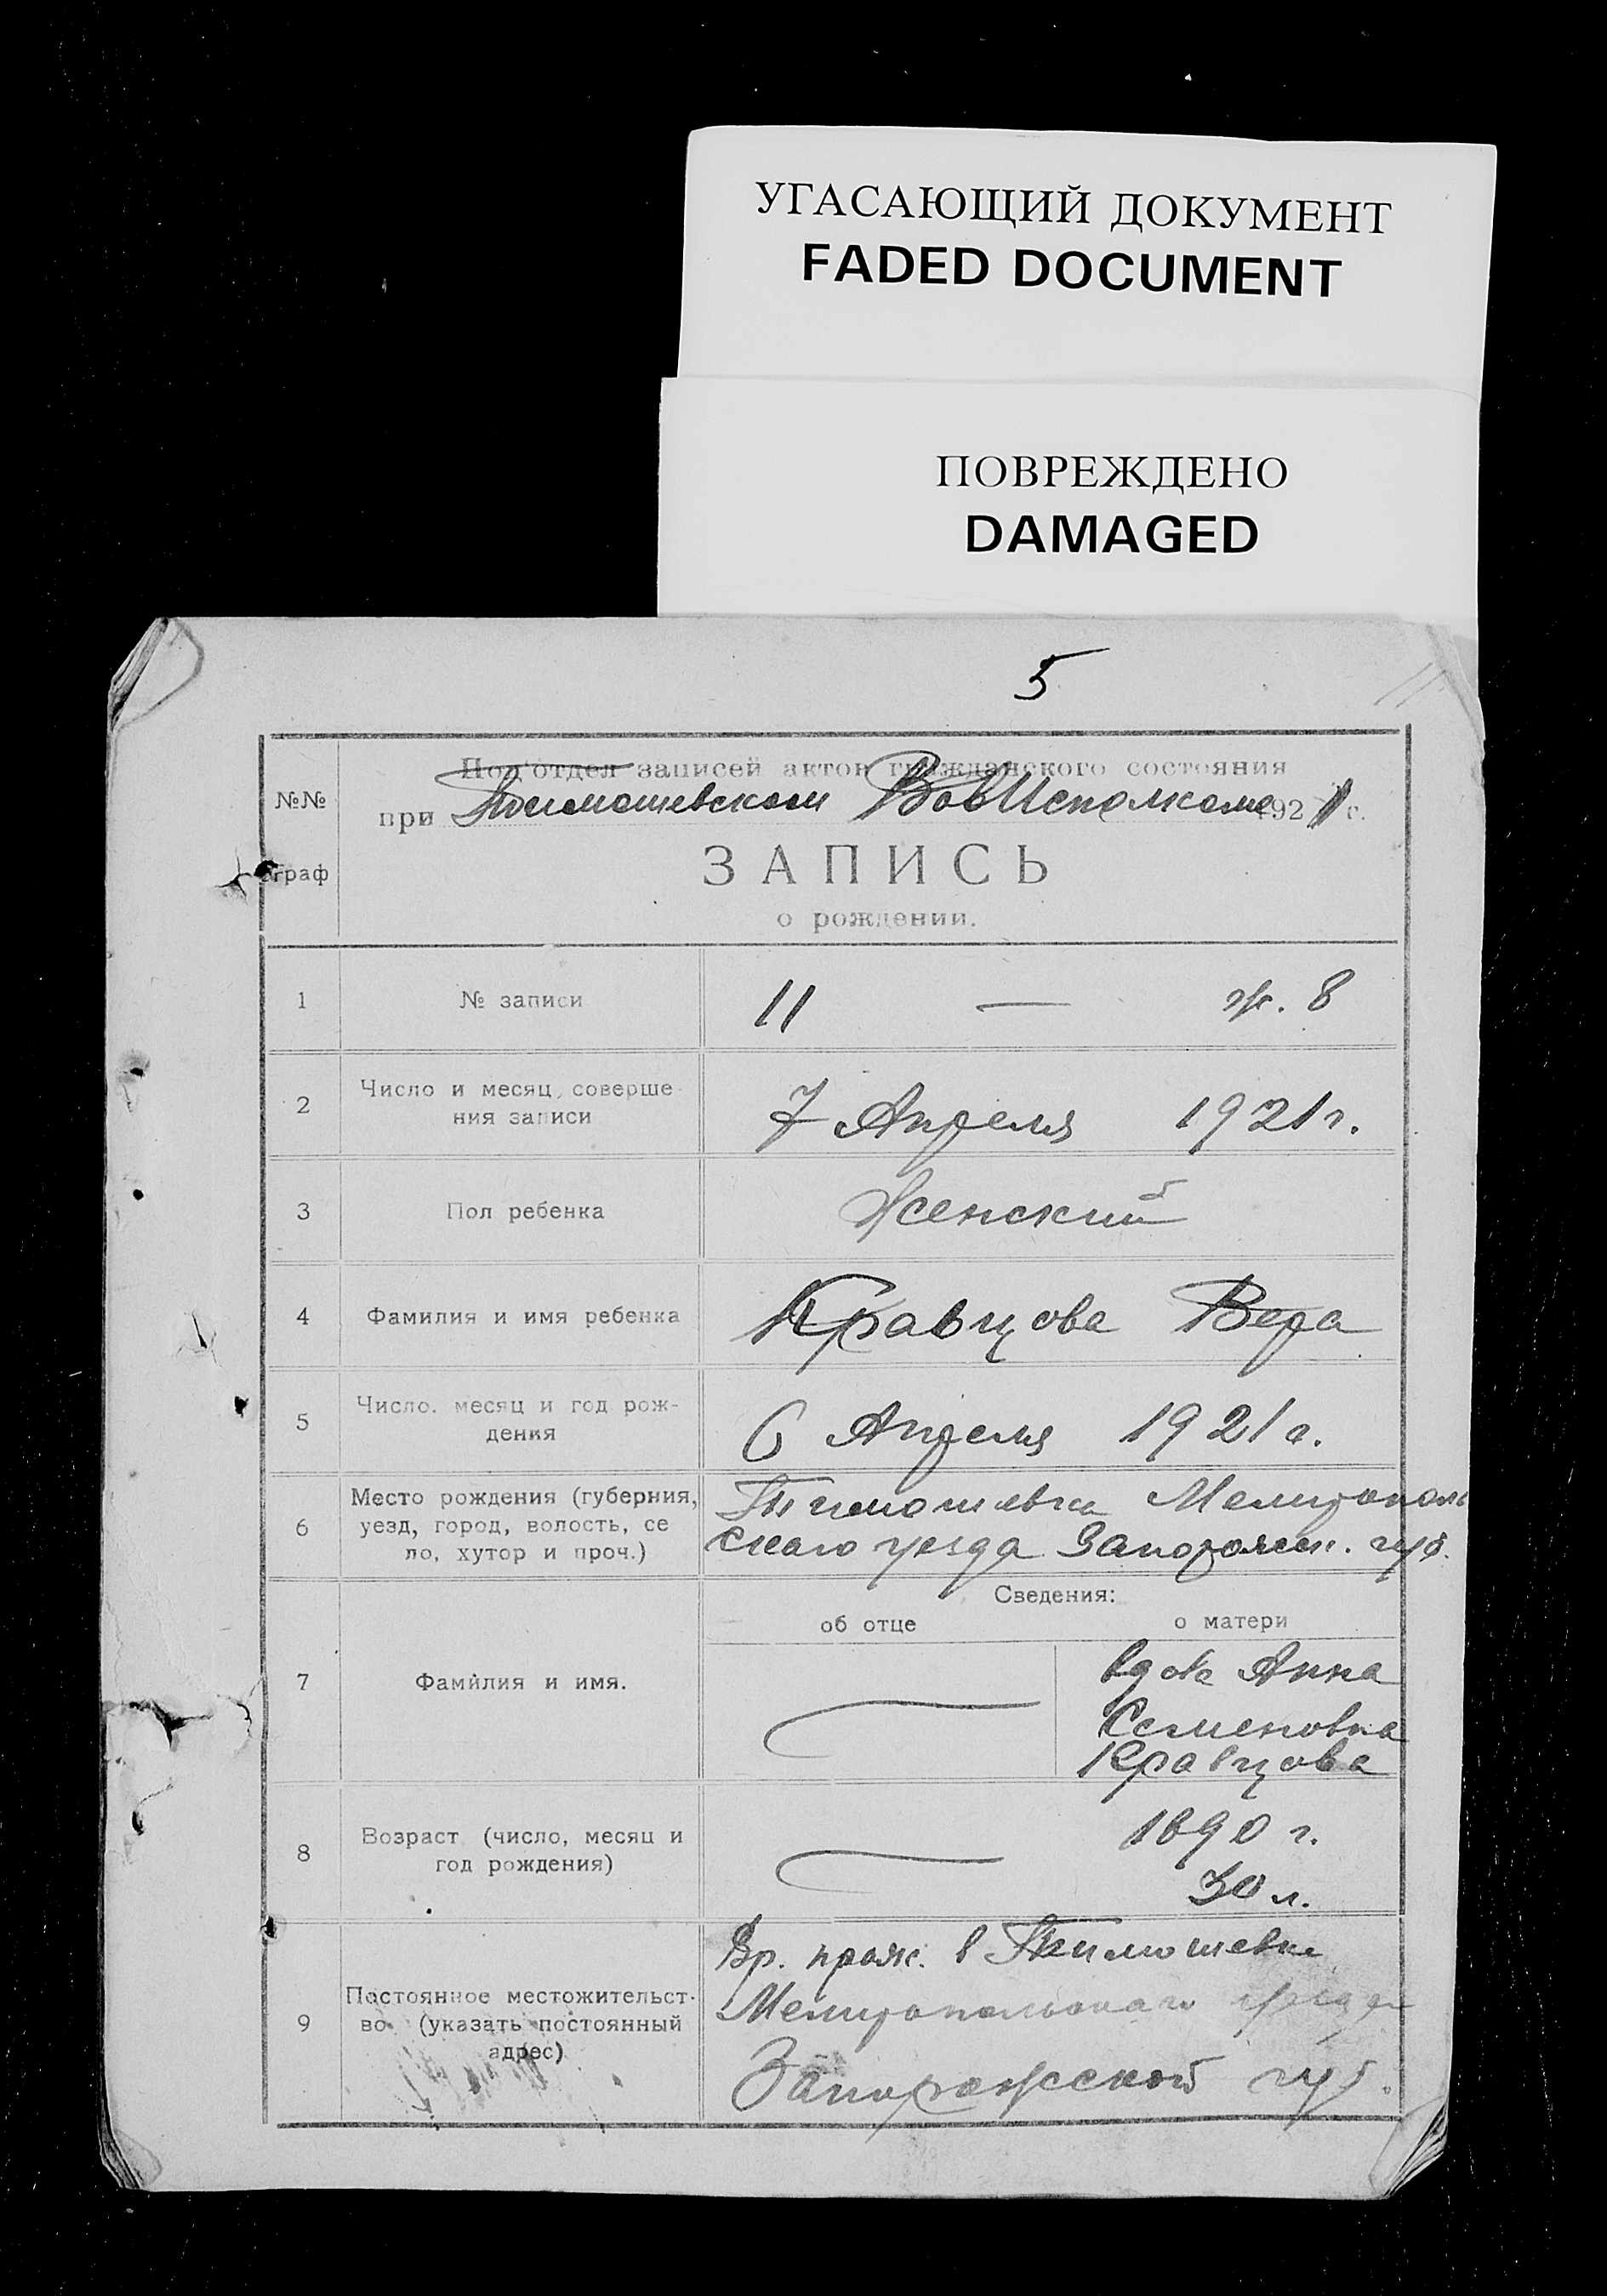 УГАСАЮЩИЙ ДОКУМЕНТ
FADED DOCUMENT
ПОВРЕЖДЕНО
DAMAGED
5
№№
граф
Под‘отдел записей актов гражданского состояния
при Тимошевском ВолИсполкоме 1921 г.
ЗАПИСЬ
о рождении.
1 № записи 11 — ж. 8
2 Число и месяц соверше-
ния записи 7 Апреля 1921 г.
3 Пол ребенка Женский
4 Фамилия и имя ребенка Кравцова Вера
5 Число. месяц и год рож-
дения 6 Апреля 1921 г.
6 Место рождения (губерния, Тимошевка Мелитополь
уезд, город, волость, се
ло, хутор и проч.) скаго уезда Запорожск. губ.
Сведения:
об отце о матери
7 Фамилия и имя. вдова Анна
Семеновна
Кравцова
8 Возраст (число, месяц и
год рождения) 1890 г.
30 л.
9 Постоянное местожительст-
во (указать постоянный
адрес) Вр. прож. в Тимошевке
Мелитопольскаго уезда
Запорожской губ.